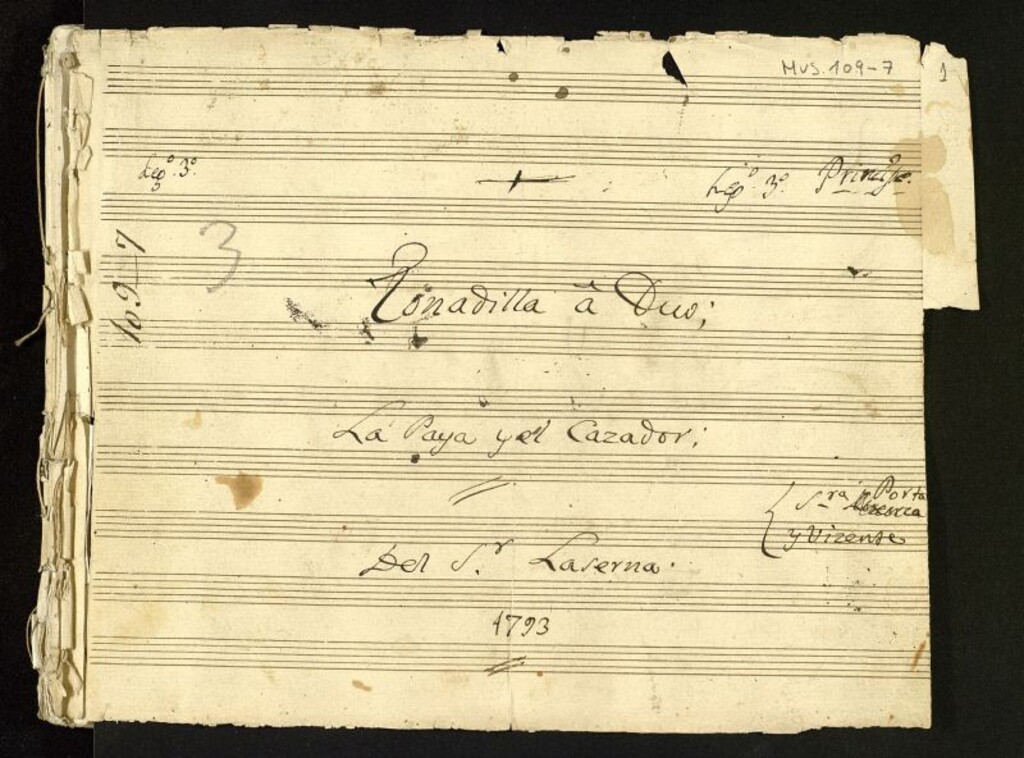 MUS. 109-7
1
Leg.º 3.º
Leg.º 3.º Principe.
3
109-7
Tonadilla â Duo;
La Paya y el Cazador;
S.ra Porta
y Vizente
Del S.r Laserna.
1793